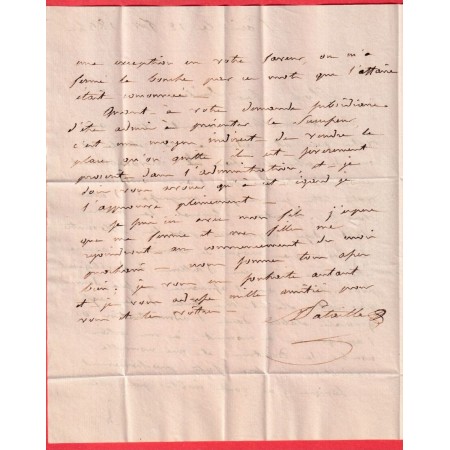 une exception en votre faveur, on m'a
fermé la bouche par ce mot que l'affaire
était consommée.
Quant à votre demande subsidiaire
d'être admis à présenter le
c'est un moyen indirect de vendre la
place qu'on quitte. Il est
dans l'administration, et je
dois vous avouer qu'à cet égard je
l'approuve pleinement —
Je suis ici avec mon fils. j'espère
que ma femme et ma fille me
rejoindront au commencement du mois
prochain — nous sommes tous assez
bien : je vous en souhaite autant
et je vous adresse mille amitiés pour
vous et les vôtres —
Pataille